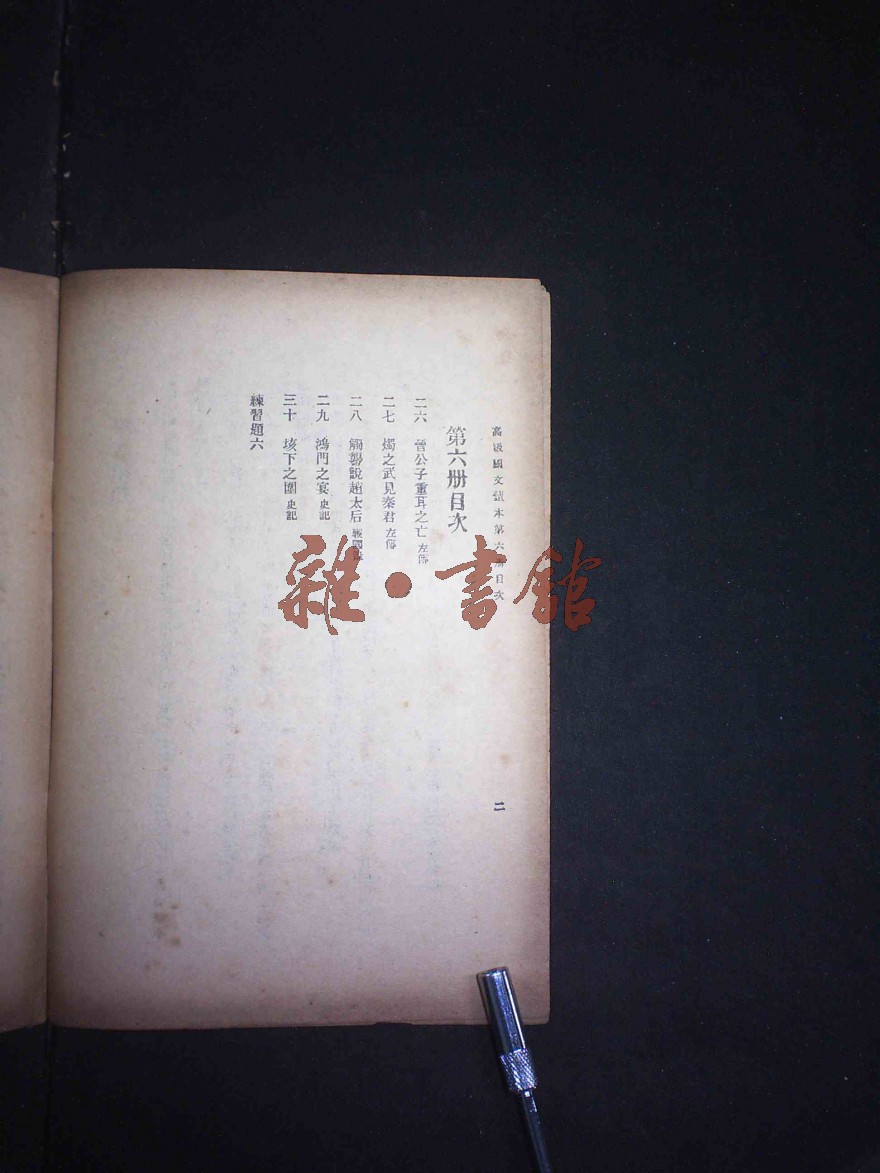 高級國文讀本第六冊目次
二
第六册目次
二六 晉公子重耳之亡 左傳
二七 燭之武見秦君 左傳
二八 觸讋說趙太后 戰國策
二九 鴻門之宴 史記
三十 垓下之圍 史記
練習題六
雜·書館